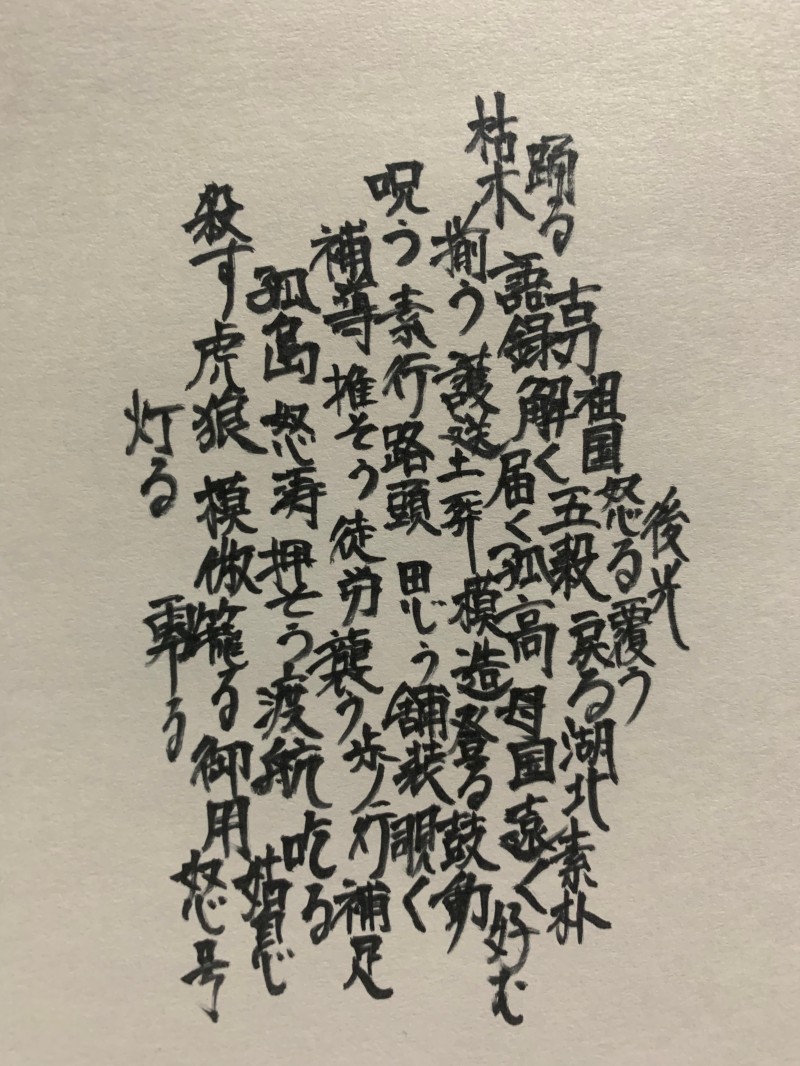 後光
怒る 覆う
祖国 戻る 湖北 素朴
古刀 解く 五穀
踊る
語録 届く 孤高 母国 遠く 好む
枯木
揃う 護送 土葬 模造 登る 鼓動
呪う 素行 路頭 思う 舗装 覗く
補導 推そう 徒労 襲う 歩行 補足
孤島 怒涛 押そう 渡航 吃る
殺す 虎狼 模倣 籠る 御用 姑息
怒号
灯る
零る